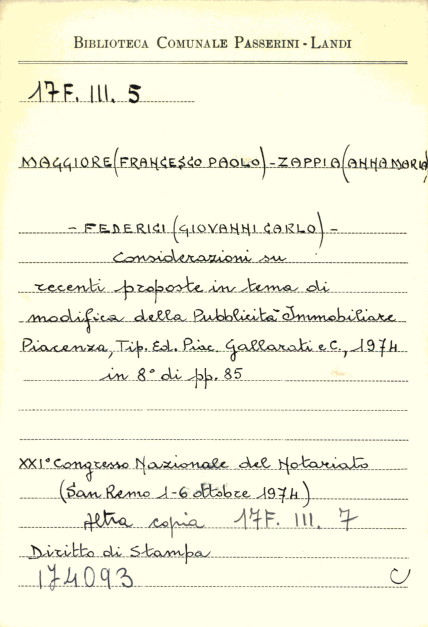 BIBLIOTECA COMUNALE PASSERINI - LANDI
17F. III. 5
MAGGIORE (FRANCESCO PAOLO) - ZAPPIA (ANNA MARIA)
- FEDERICI (GIOVANNI CARLO) -
Considerazioni su
recenti proposte in tema di
modifica della Pubblicità Immobiliare
Piacenza, Tip. Ed. Piac. Gallarati e C., 1974
in 8° di pp. 85
XXI° Congresso Nazionale del Notariato
(San Remo 1-6 ottobre 1974)
Altra copia 17F. III. 7
Diritto di Stampa
174093 C